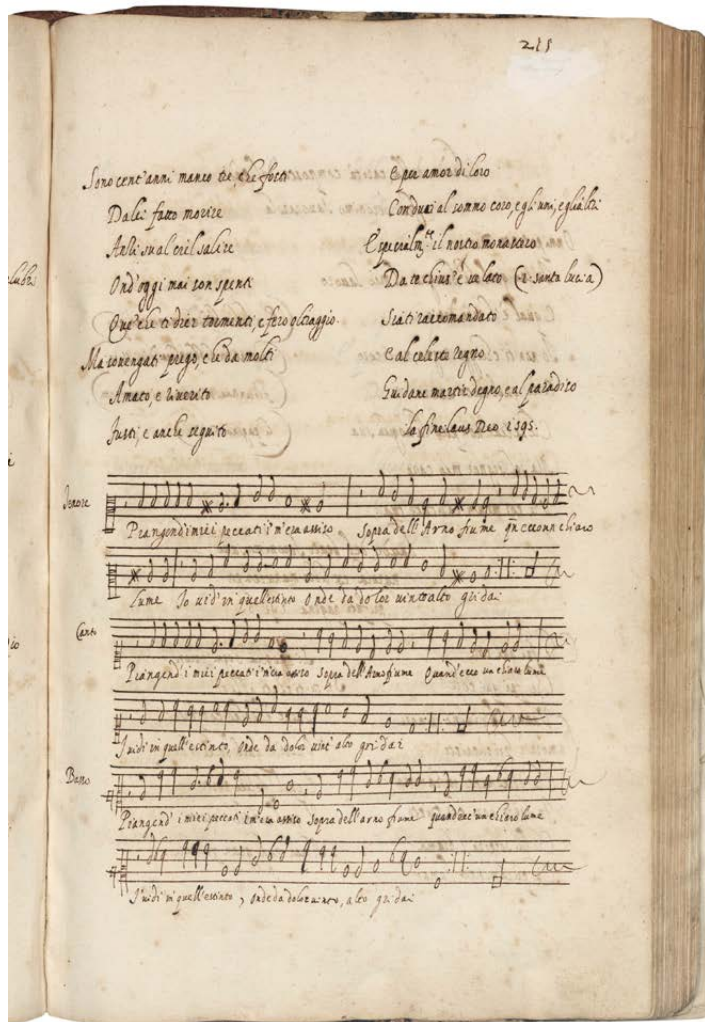 215
Sono cent'anni manco tre, che fosti
Da lei fatto morire
Anzi su al ciel salire
Ond'oggi mai son spenti
Que' che ti dier tormenti, e fero oltraggio.
Ma sovengati prego, che da molti
Amato, e riverito
Fusti, e anche seguito
E per amor di loro
Conduci al sommo coro, e gli uni, e gli altri
E specialm.te il nostro monastero
Da te chius' e velato (i. santa lucia)
Siati raccomandato
E al celeste regno
Guidane martir degno, e al paradiso
la fine laus Deo 1595.
Tenore
Piangend i miei peccati i' m'era assiso Sopra dell'Arno fiume qn ecco un chiaro
lume Io vid' in quell'estinto Onde da dolor vinto alto gridai
Canto
Piangend' i miei peccati i' m'era assiso sopra dell'Arno fiume Quand'ecco un chiaro lume
I' vidi in quell'estinto, onde da dolor vint' alto gridai
Basso
Piangend' i miei peccati i m'era assiso sopra dell'arno fiume quand'ecc'un chiaro lume
I' vidi in quell'estinto, onde da dolor vinto, alto gridai